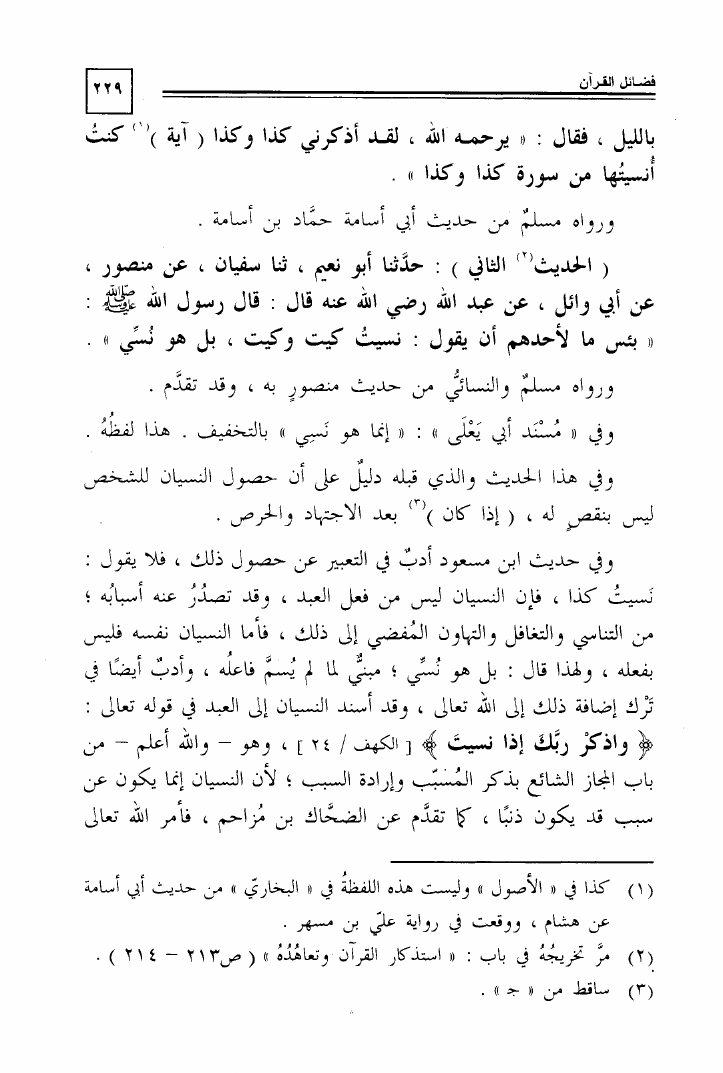 فضائل القرآن
٢٢٩
بالليل ، فقال : « يرحمه الله ، لقد أذكرني كذا وكذا ( آية )(١) كنتُ
أُنسيتُها من سورة كذا وكذا » .
ورواه مسلمٌ من حديث أبي أسامة حمَّاد بن أسامة .
( الحديث(٢) الثاني ) : حدَّثنا أبو نعيم ، ثنا سفيان ، عن منصور ،
عن أبي وائل ، عن عبد الله رضي الله عنه قال : قال رسول الله ﷺ :
« بئس ما لأحدهم أن يقول : نسيتُ كيت وكيت ، بل هو نُسِّي » .
ورواه مسلمٌ والنسائيُّ من حديث منصورٍ به ، وقد تقدَّم .
وفي « مُسْنَد أبي يَعْلَى » : « إنما هو نَسِي » بالتخفيف . هذا لفظُهُ .
وفي هذا الحديث والذي قبله دليلٌ على أن حصول النسيان للشخص
ليس بنقصٍ له ، ( إذا كان )(٣) بعد الاجتهاد والحرص .
وفي حديث ابن مسعود أدبٌ في التعبير عن حصول ذلك ، فلا يقول :
نَسيتُ كذا ، فإن النسيان ليس من فعل العبد ، وقد تصدُرُ عنه أسبابُه ؛
من التناسي والتغافل والتهاون المُفضي إلى ذلك ، فأما النسيان نفسه فليس
بفعله ، ولهذا قال : بل هو نُسِّي ؛ مبنيٌّ لما لم يُسمَّ فاعلُه ، وأدبٌ أيضًا في
تَرْك إضافة ذلك إلى الله تعالى ، وقد أسند النسيان إلى العبد في قوله تعالى :
﴿ واذكرْ ربَّكَ إذا نسيتَ ﴾ [ الكهف / ٢٤ ] ، وهو – والله أعلم – من
باب المجاز الشائع بذكر المُسبّب وإرادة السبب ؛ لأن النسيان إنما يكون عن
سبب قد يكون ذنبًا ، كما تقدَّم عن الضحَّاك بن مُزاحم ، فأمر الله تعالى
(١) كذا في « الأصول » وليست هذه اللفظةُ في « البخاريّ » من حديث أبي أسامة
عن هشام ، ووقعت في رواية عليّ بن مسهر .
(٢) مرَّ تخريجُهُ في باب : « استذكار القرآن وتعاهُدُه » ( ص٢١٣ – ٢١٤ ) .
(٣) ساقط من « جـ » .